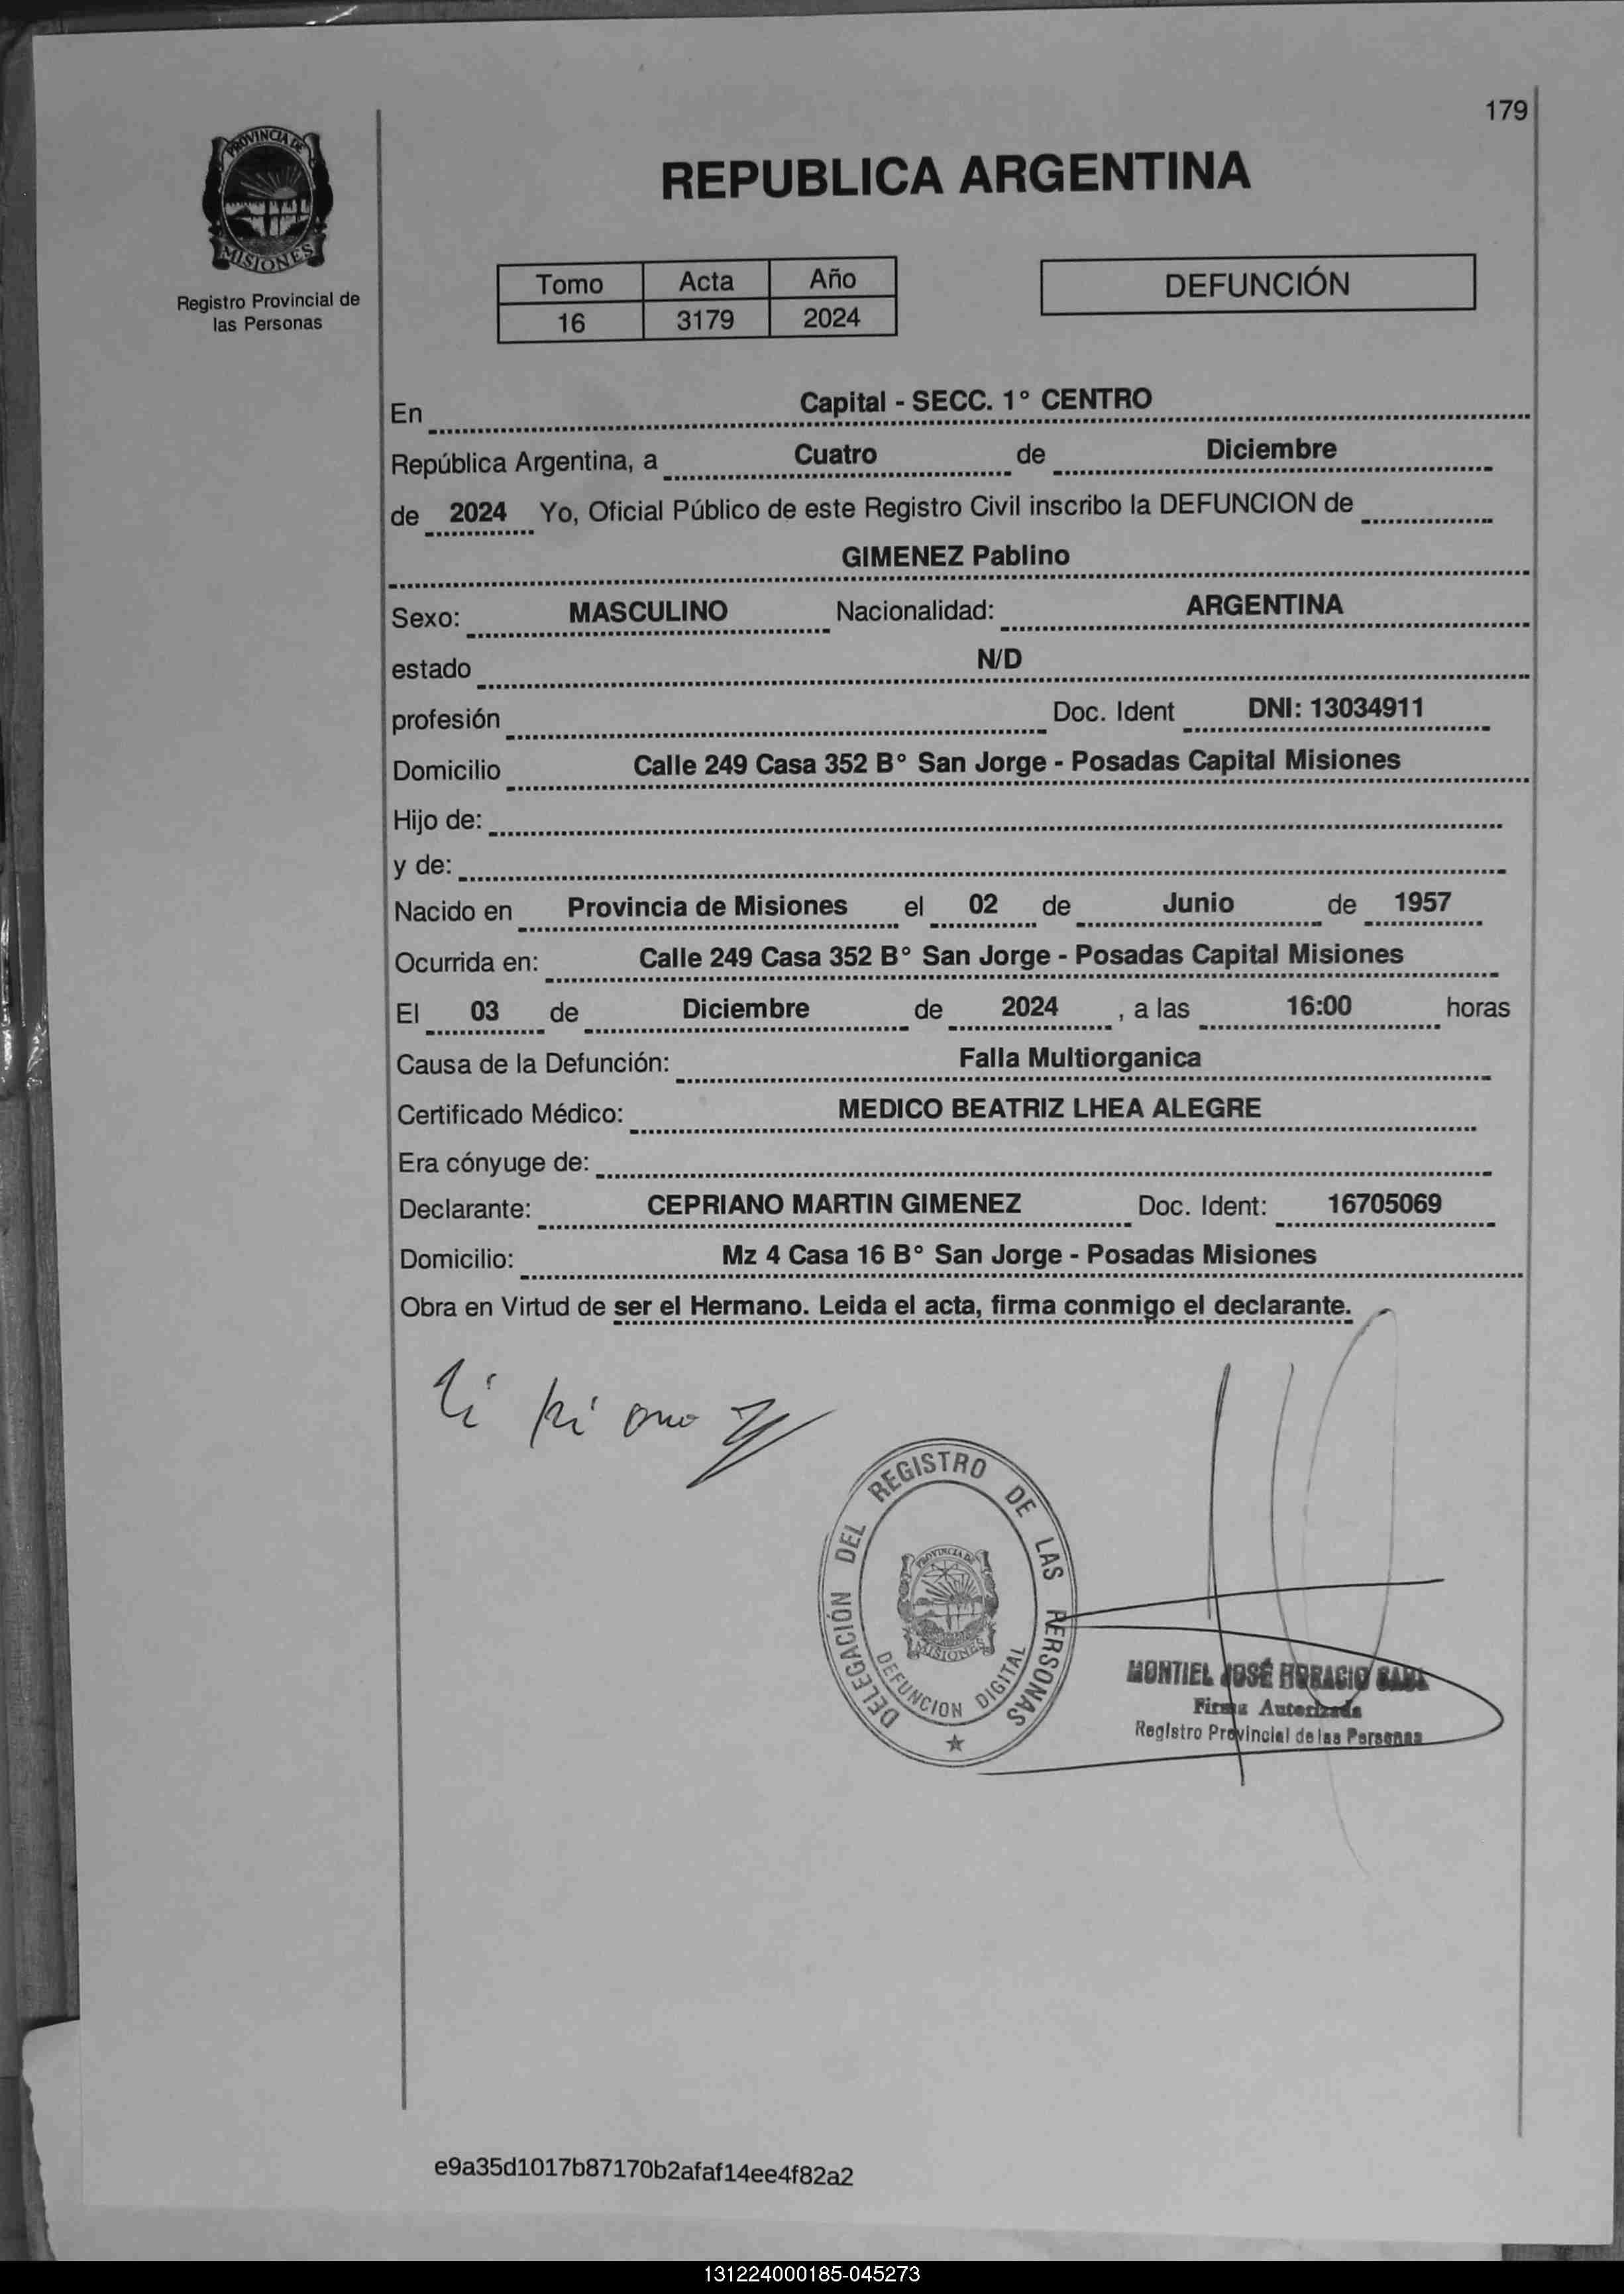 179
PROVINCIA DE
MISIONES
Registro Provincial de
las Personas
REPUBLICA ARGENTINA
Tomo Acta Año
16 3179 2024
DEFUNCIÓN
En Capital - SECC. 1° CENTRO
República Argentina, a Cuatro de Diciembre
de 2024 Yo, Oficial Público de este Registro Civil inscribo la DEFUNCION de
GIMENEZ Pablino
Sexo: MASCULINO Nacionalidad: ARGENTINA
estado N/D
profesión Doc. Ident DNI: 13034911
Domicilio Calle 249 Casa 352 B° San Jorge - Posadas Capital Misiones
Hijo de:
y de:
Nacido en Provincia de Misiones el 02 de Junio de 1957
Ocurrida en: Calle 249 Casa 352 B° San Jorge - Posadas Capital Misiones
El 03 de Diciembre de 2024 , a las 16:00 horas
Causa de la Defunción: Falla Multiorganica
Certificado Médico: MEDICO BEATRIZ LHEA ALEGRE
Era cónyuge de:
Declarante: CEPRIANO MARTIN GIMENEZ Doc. Ident: 16705069
Domicilio: Mz 4 Casa 16 B° San Jorge - Posadas Misiones
Obra en Virtud de ser el Hermano. Leida el acta, firma conmigo el declarante.
DELEGACIÓN DEL REGISTRO DE LAS PERSONAS
PROVINCIA DE
MISIONES
DEFUNCION DIGITAL
MONTIEL JOSÉ HORACIO
Firma Autorizada
Registro Provincial de las Personas
e9a35d1017b87170b2afaf14ee4f82a2
131224000185-045273